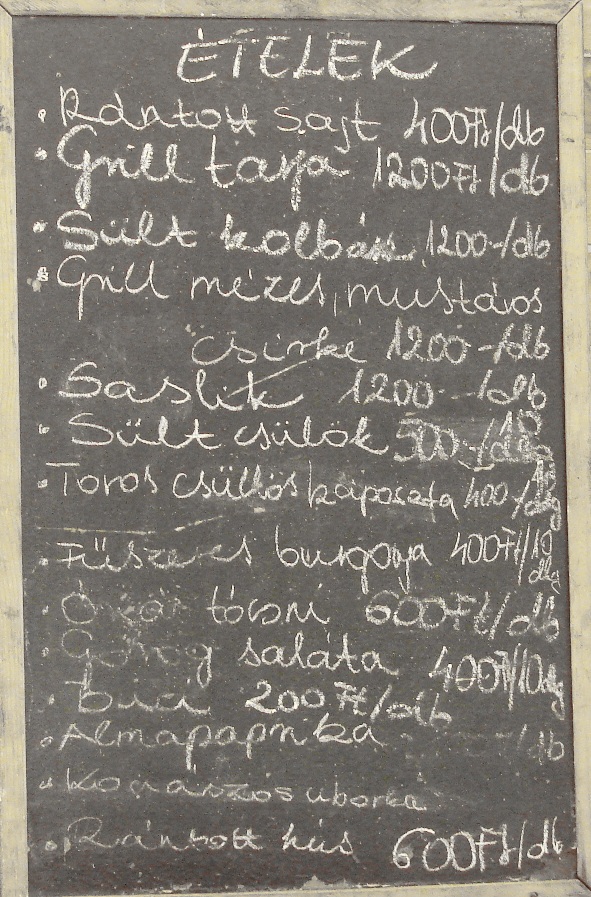 ÉTELEK
• Rántott sajt 400Ft/db
• Grill tarja 1200Ft/db
• Sült kolbász 1200-/db
• Grill mézes, mustáros
csirke 1200-/db
• Saslik 1200-/db
• Sült csülök 500-/10 dkg
• Toros csüllős káposzta 400-/10 dkg
• Fűszeres burgonya 400Ft/10 dkg
• tócsni 600Ft/db
• Görög saláta 400Ft/10dkg
• 200Ft/db
• Almapaprika /db
• Kovászos uborka
• Rántott hús 600Ft/db